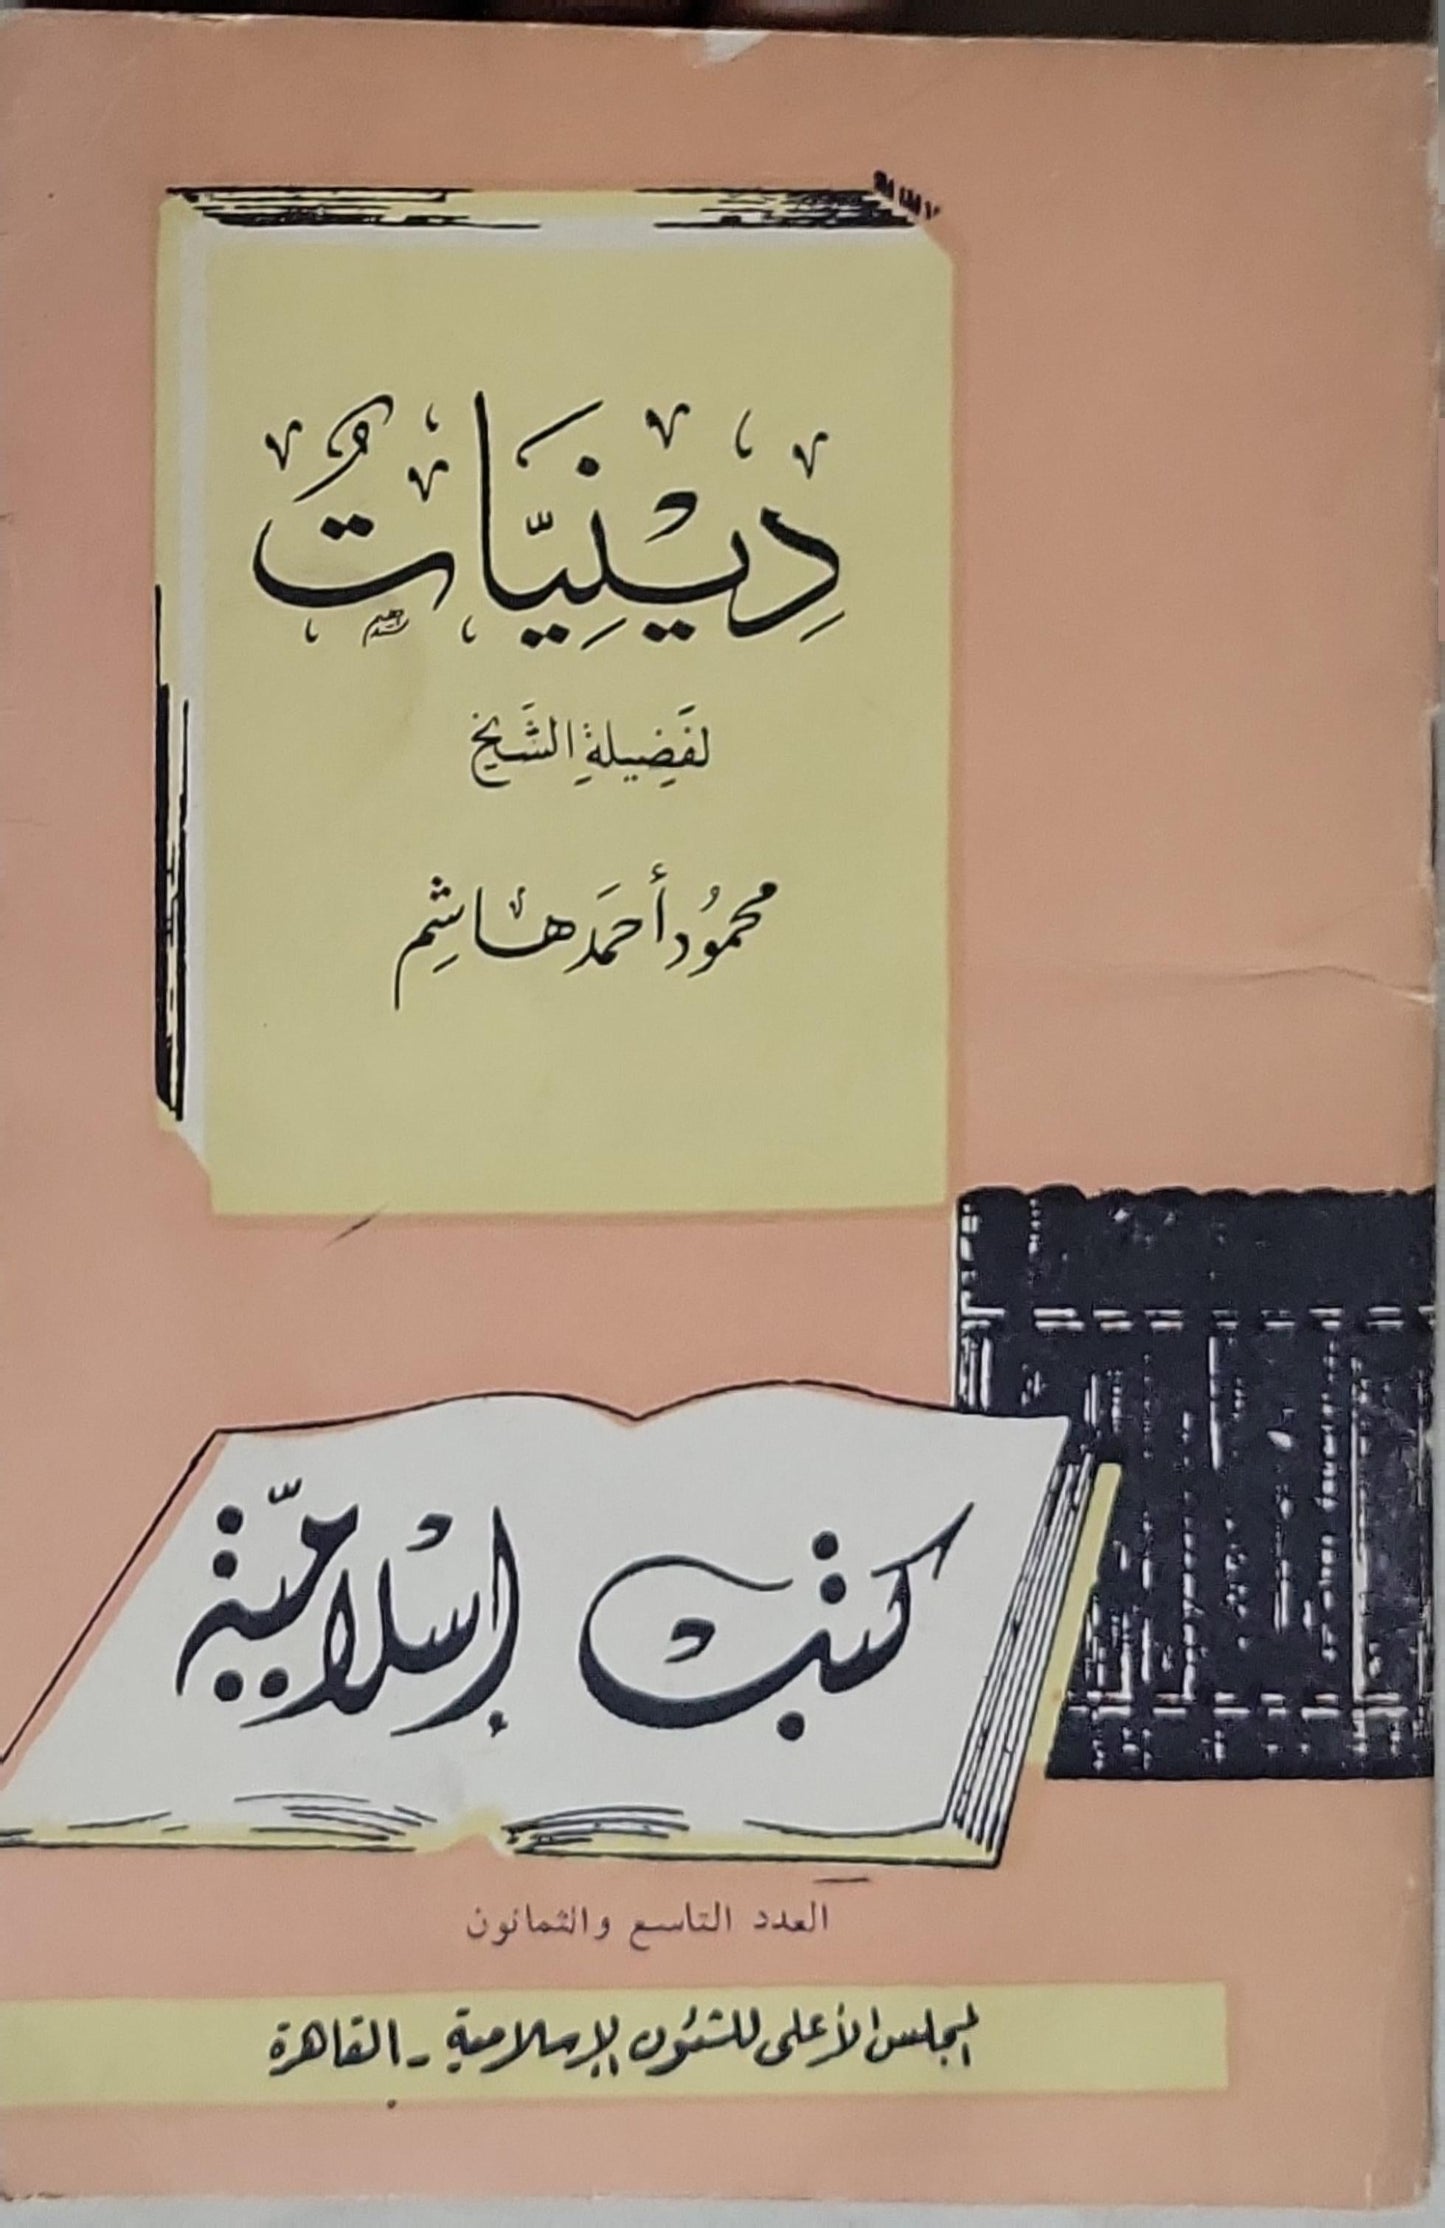 دِيْنِيَّاتٌ
لفَضِيلةِ الشَّيخ
محمُود أحمَد هاشِم
كتب إسْلاميّة
العدد التاسع والثمانون
المجلس الأعلى للشئون الإسلامية - القاهرة